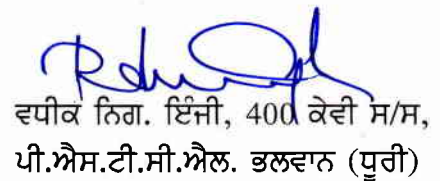 ਵਧੀਕ ਨਿਗ. ਇੰਜੀ, 400 ਕੇਵੀ ਸ/ਸ,
ਪੀ.ਐਸ.ਟੀ.ਸੀ.ਐਲ. ਭਲਵਾਨ (ਧੂਰੀ)